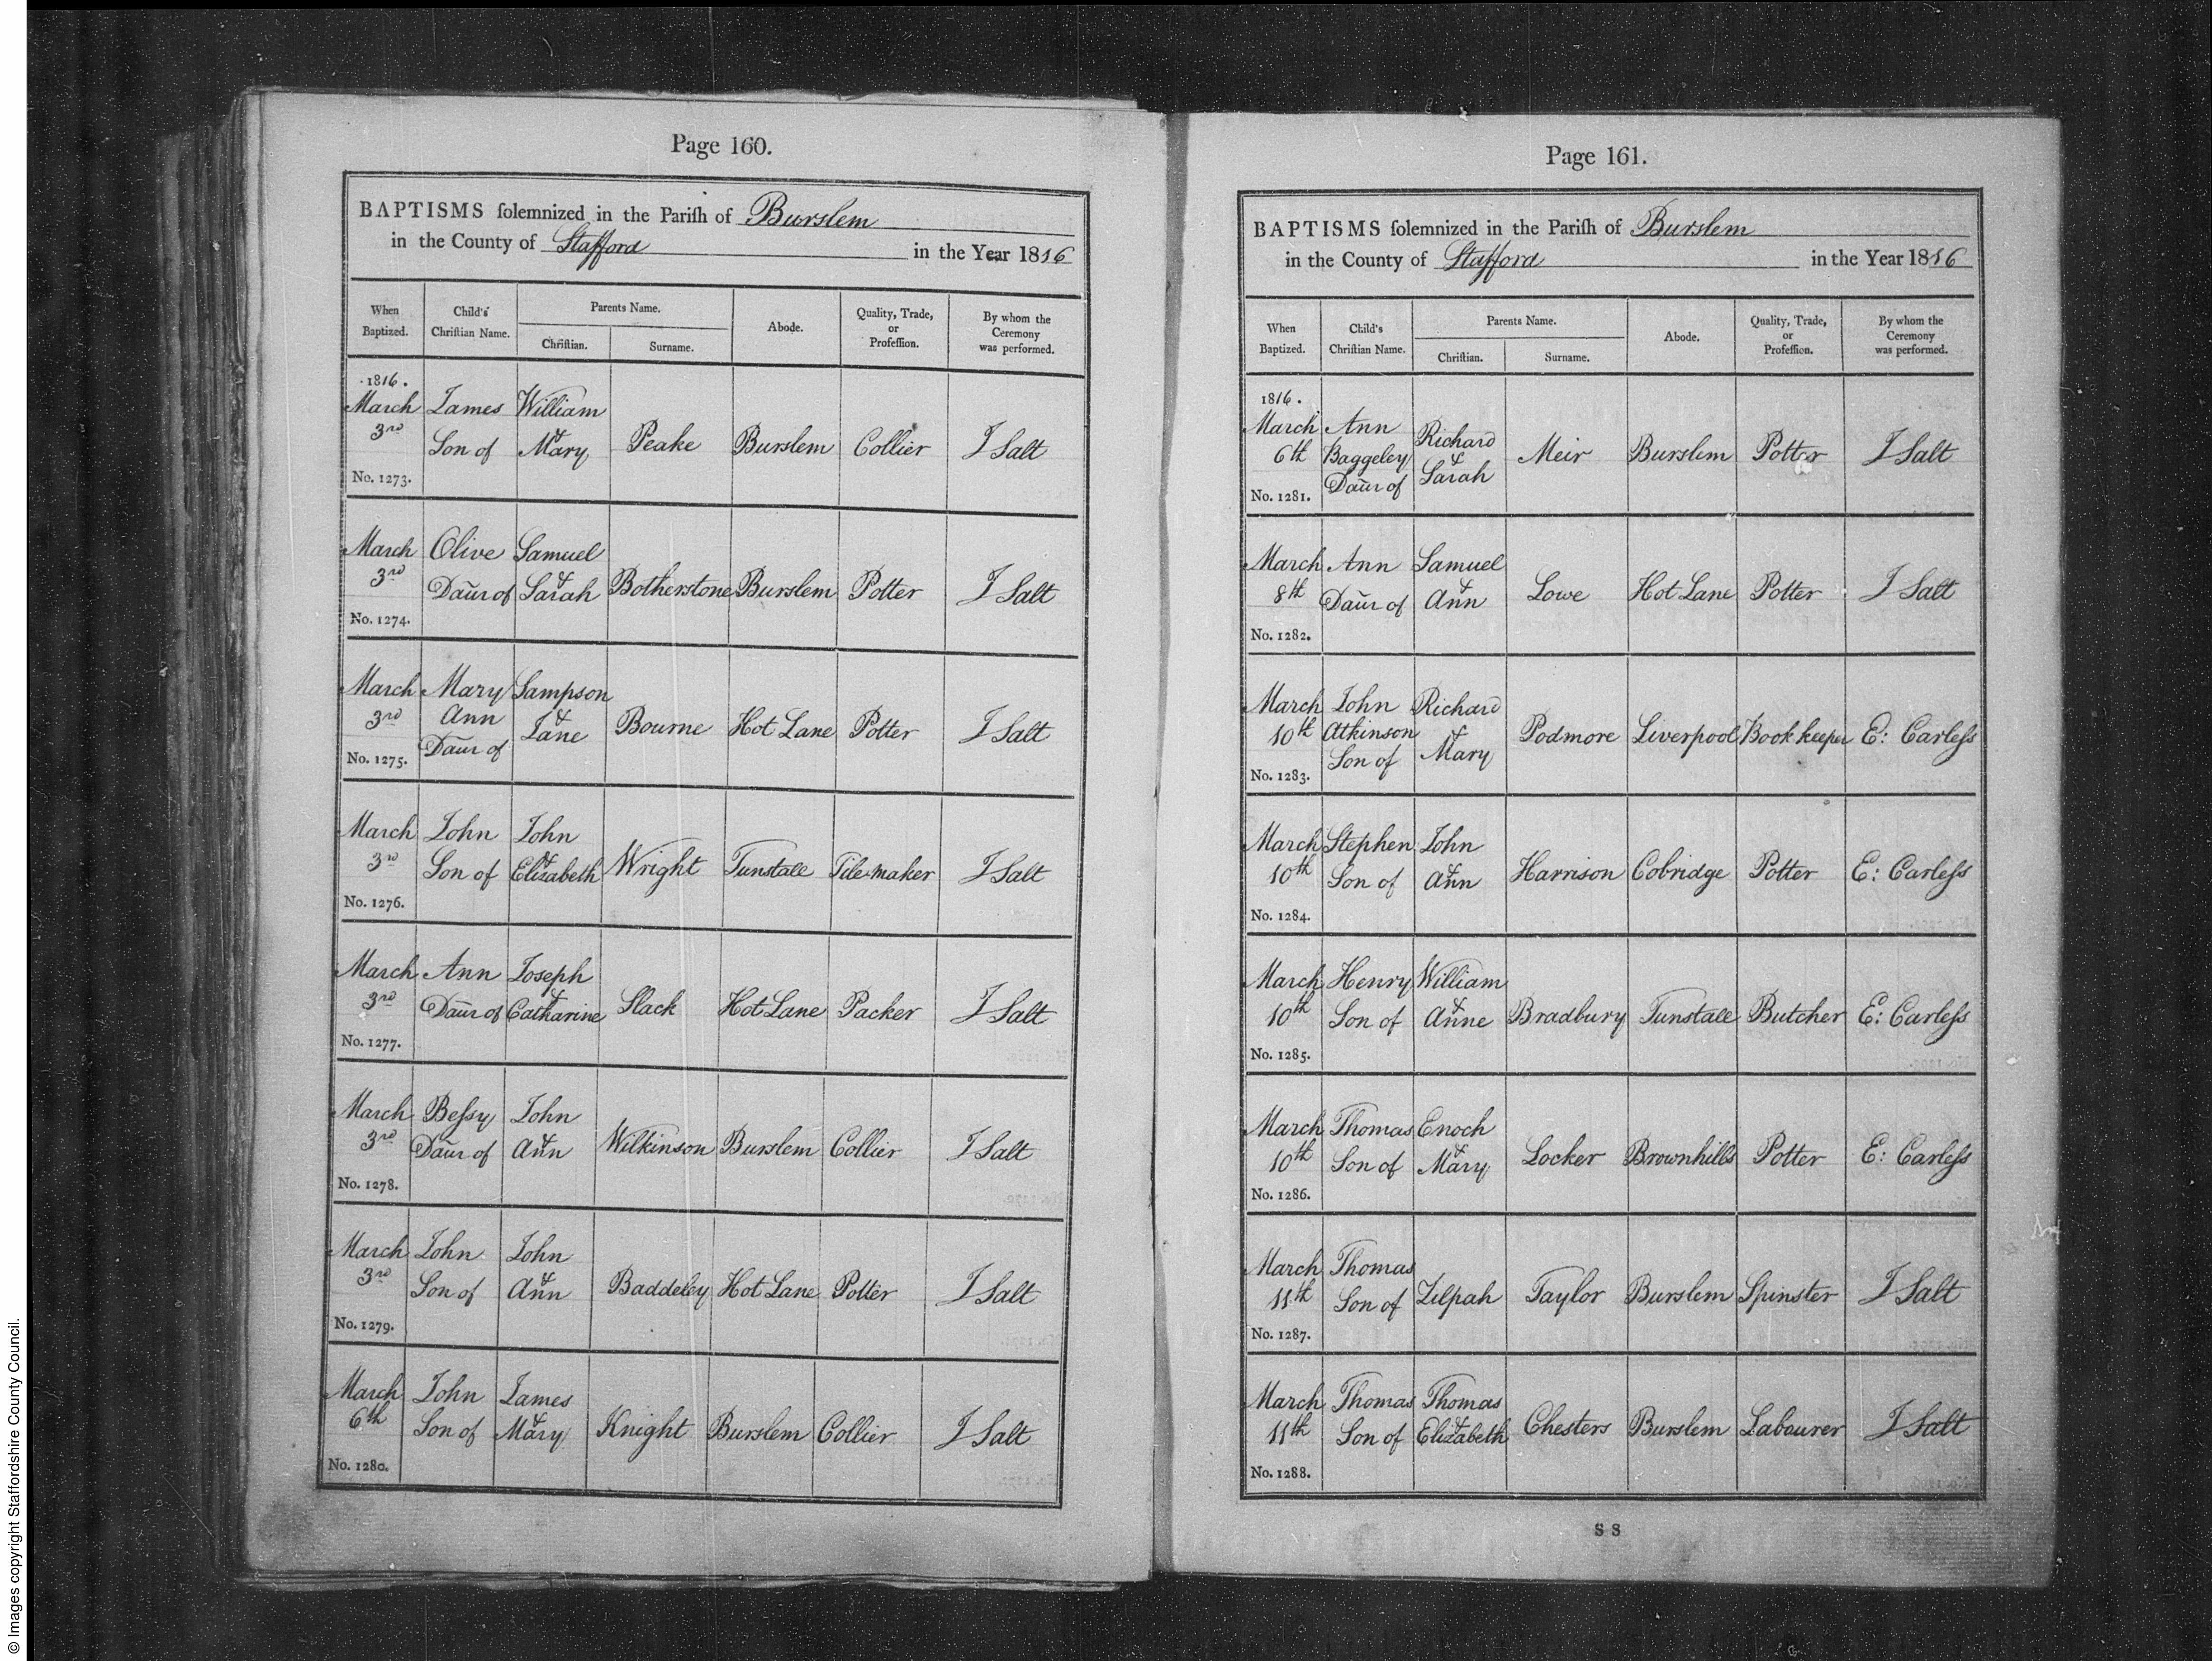 Page 160.
BAPTISMS ſolemnized in the Pariſh of Burslem
in the County of Stafford in the Year 1816
When Baptized. Child's Chriſtian Name. Parents Name. Chriſtian. Surname. Abode. Quality, Trade, or Profeſſion. By whom the Ceremony was performed.
1816.
March James William
3rd Son of & Mary Peake Burslem Collier J Salt
No. 1273.
March Olive Samuel
3rd Daur of & Sarah Botherstone Burslem Potter J Salt
No. 1274.
March Mary Sampson
3rd Ann & Jane Bourne Hot Lane Potter J Salt
Daur of
No. 1275.
March John John
3rd Son of & Elizabeth Wright Tunstall Tile-maker J Salt
No. 1276.
March Ann Joseph
3rd Daur of & Catharine Slack Hot Lane Packer J Salt
No. 1277.
March Beſsy John
3rd Daur of & Ann Wilkinson Burslem Collier J Salt
No. 1278.
March John John
3rd Son of & Ann Baddeley Hot Lane Potter J Salt
No. 1279.
March John James
6th Son of & Mary Knight Burslem Collier J Salt
No. 1280.
Page 161.
BAPTISMS ſolemnized in the Pariſh of Burslem
in the County of Stafford in the Year 1816
When Baptized. Child's Chriſtian Name. Parents Name. Chriſtian. Surname. Abode. Quality, Trade, or Profeſſion. By whom the Ceremony was performed.
1816.
March Ann Richard
6th Baggeley & Sarah Meir Burslem Potter J Salt
Daur of
No. 1281.
March Ann Samuel
8th Daur of & Ann Lowe Hot Lane Potter J Salt
No. 1282.
March John Richard
10th Atkinson & Mary Podmore Liverpool Book keeper E: Carleſs
Son of
No. 1283.
March Stephen John
10th Son of & Ann Harrison Cobridge Potter E: Carleſs
No. 1284.
March Henry William
10th Son of & Anne Bradbury Tunstall Butcher E: Carleſs
No. 1285.
March Thomas Enoch
10th Son of & Mary Locker Brownhills Potter E: Carleſs
No. 1286.
March Thomas
11th Son of Zilpah Taylor Burslem Spinster J Salt
No. 1287.
March Thomas Thomas
11th Son of & Elizabeth Chesters Burslem Labourer J Salt
No. 1288.
S S
© Images copyright Staffordshire County Council.